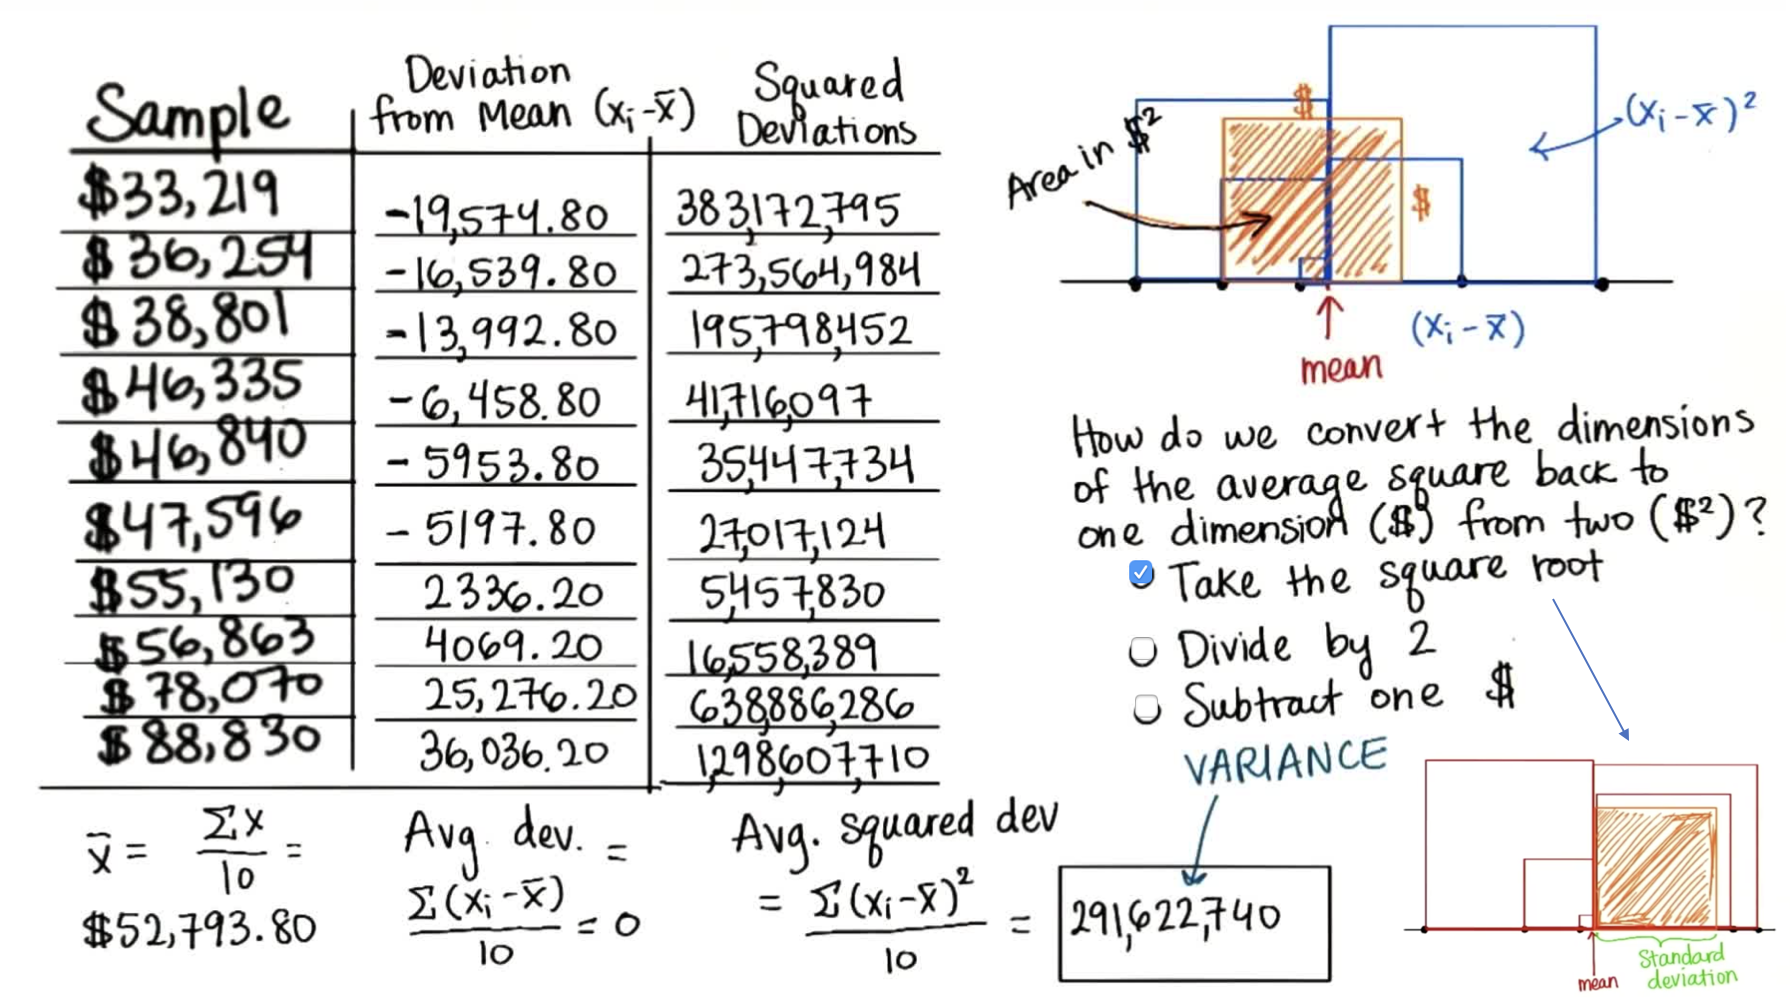 Sample | Deviation from Mean (xᵢ-x̄) | Squared Deviations
$33,219 | -19,574.80 | 383,172,795
$36,254 | -16,539.80 | 273,564,984
$38,801 | -13,992.80 | 195,798,452
$46,335 | -6,458.80 | 41,716,097
$46,840 | -5953.80 | 35,447,734
$47,596 | -5197.80 | 27,017,124
$55,130 | 2336.20 | 5,457,830
$56,863 | 4069.20 | 16,558,389
$78,070 | 25,276.20 | 638,886,286
$88,830 | 36,036.20 | 1,298,607,710
x̄ = Σx/10 =
$52,793.80
Avg. dev. =
Σ(xᵢ-x̄)/10 = 0
Avg. squared dev
= Σ(xᵢ-x̄)²/10 = 291,622,740
VARIANCE
$
Area in $²
$
(xᵢ-x̄)²
(xᵢ-x̄)
mean
How do we convert the dimensions
of the average square back to
one dimension ($) from two ($²)?
Take the square root
Divide by 2
Subtract one $
mean
Standard
deviation